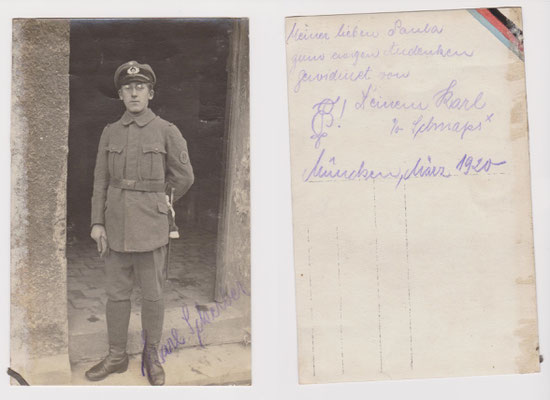 Karl
Meiner lieben Paula
zum ewigen Andenken
gewidmet von
Deinem Karl
München, März 1920